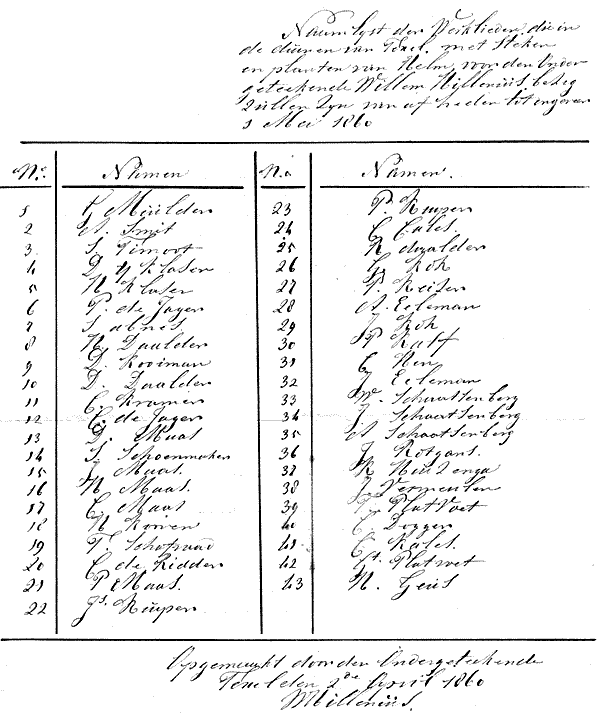 Naamlyst der Werklieden, die in
de duinen van Texel, met steken
en planten van Helm, voor den Onder-
geteekende Willem Millenius, bezig
zullen zyn van af heden tot ongeveer
1 Mei 1860
No. Namen No. Namen.
1 Mulder 23 P. Kuyper
2 A. Smit 24 C. Eales.
3 S. Timoot 25 R. daalder
4 D. Klasen 26 Kok
5 N Klasen 27 P. Keijser
6 P. de Jager 28 A. Eeleman
7 S abnes 29 Kok
8 N. Daalder 30 P Kalf
9 D. Kooiman 31 C. Ren
10 D. Daalder 32 J Eeleman
11 C. Kramer 33 W. Schaatsenberg
12 C. de Jager 34 J. Schaatsenberg
13 D. Maas 35 A Schaatsenberg
14 S. Schoenmaker 36 J. Rotgans.
15 J Maas. 37 R Huizenga
16 N Maas. 38 J. Vermeulen
17 C. Maas 39 Plat Voet
18 N Koiven 40 C. Dogger
19 T. Schotvaad 41 C. Kales.
20 C de Ridder 42 St. Platvoet
21 P Maas. 43 N. Geus
22 Js. Kuyper
Opgemaakt door den Ondergeteekende
Texel den 2de April 1860
Millenius.